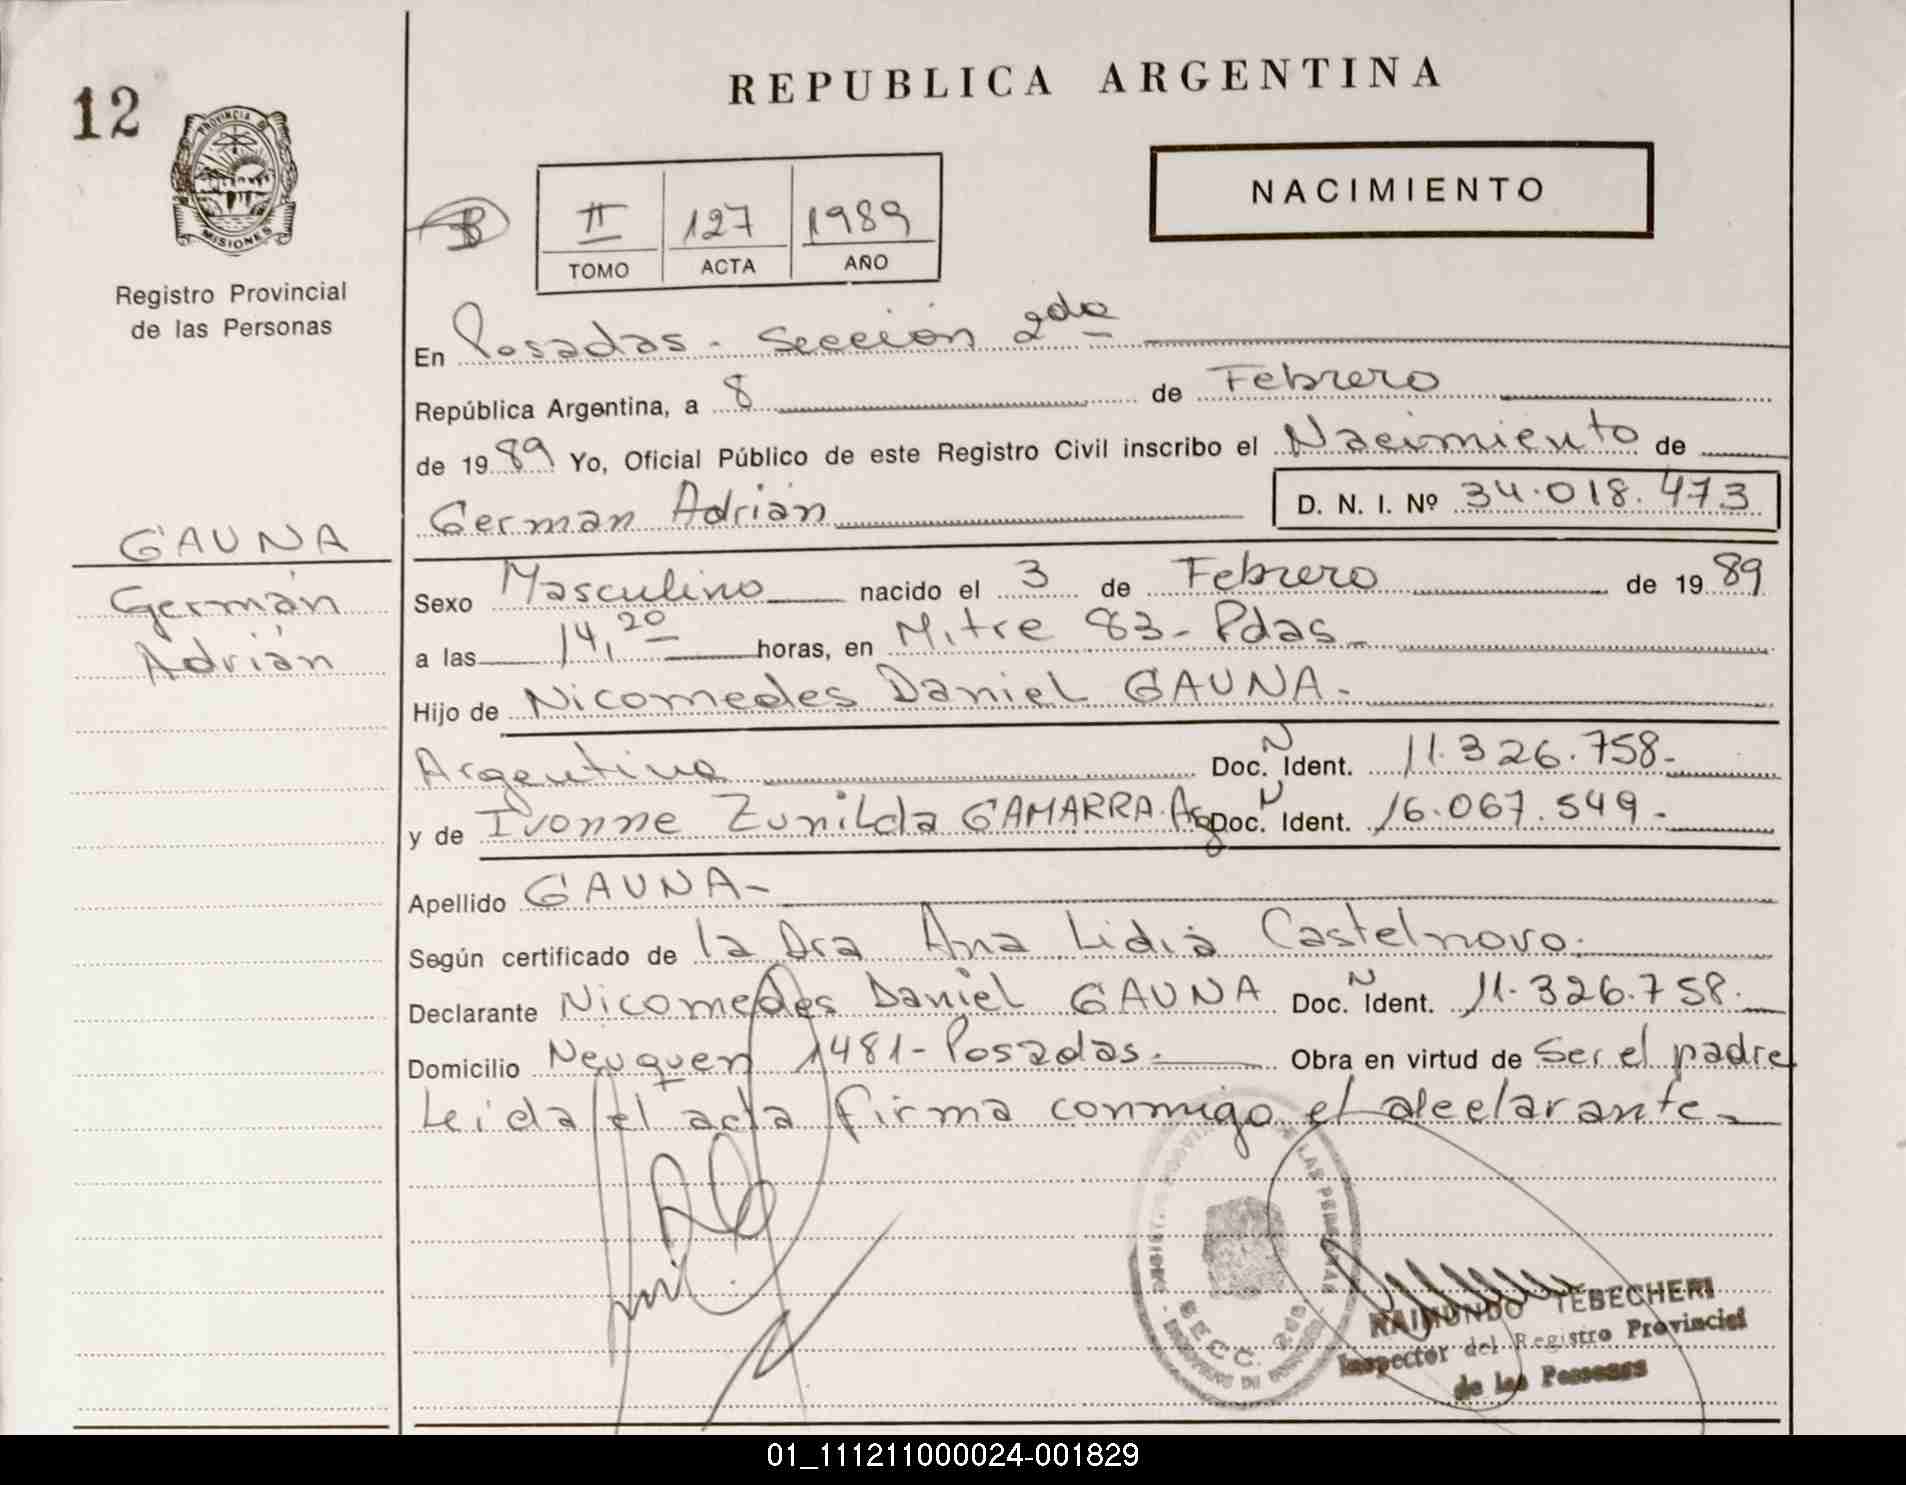 12
REPUBLICA ARGENTINA
PROVINCIA DE
MISIONES
Registro Provincial
de las Personas
NACIMIENTO
II 127 1989
TOMO ACTA AÑO
En Posadas - Sección 2da
República Argentina, a 8 de Febrero
de 1989 Yo, Oficial Público de este Registro Civil inscribo el Nacimiento de
Germán Adrián D. N. I. Nº 34.018.473
GAUNA
Germán
Adrián
Sexo Masculino nacido el 3 de Febrero de 1989
a las 14,20 horas, en Mitre 83 - Pdas -
Hijo de Nicomedes Daniel GAUNA -
Argentino Doc. N Ident. 11.326.758 -
y de Ivonne Zunilda GAMARRA. Arg Doc. N Ident. 16.067.549 -
Apellido GAUNA -
Según certificado de la Dra Ana Lidia Castelnovo.
Declarante Nicomedes Daniel GAUNA Doc. N Ident. 11.326.758.
Domicilio Neuquen 1481 - Posadas. Obra en virtud de Ser el padre
Leida el acta firma conmigo el declarante -
LAS PERSONAS
SECC. 2da
RAIMUNDO TEBECHERI
Inspector del Registro Provincial
de las Personas
01_111211000024-001829